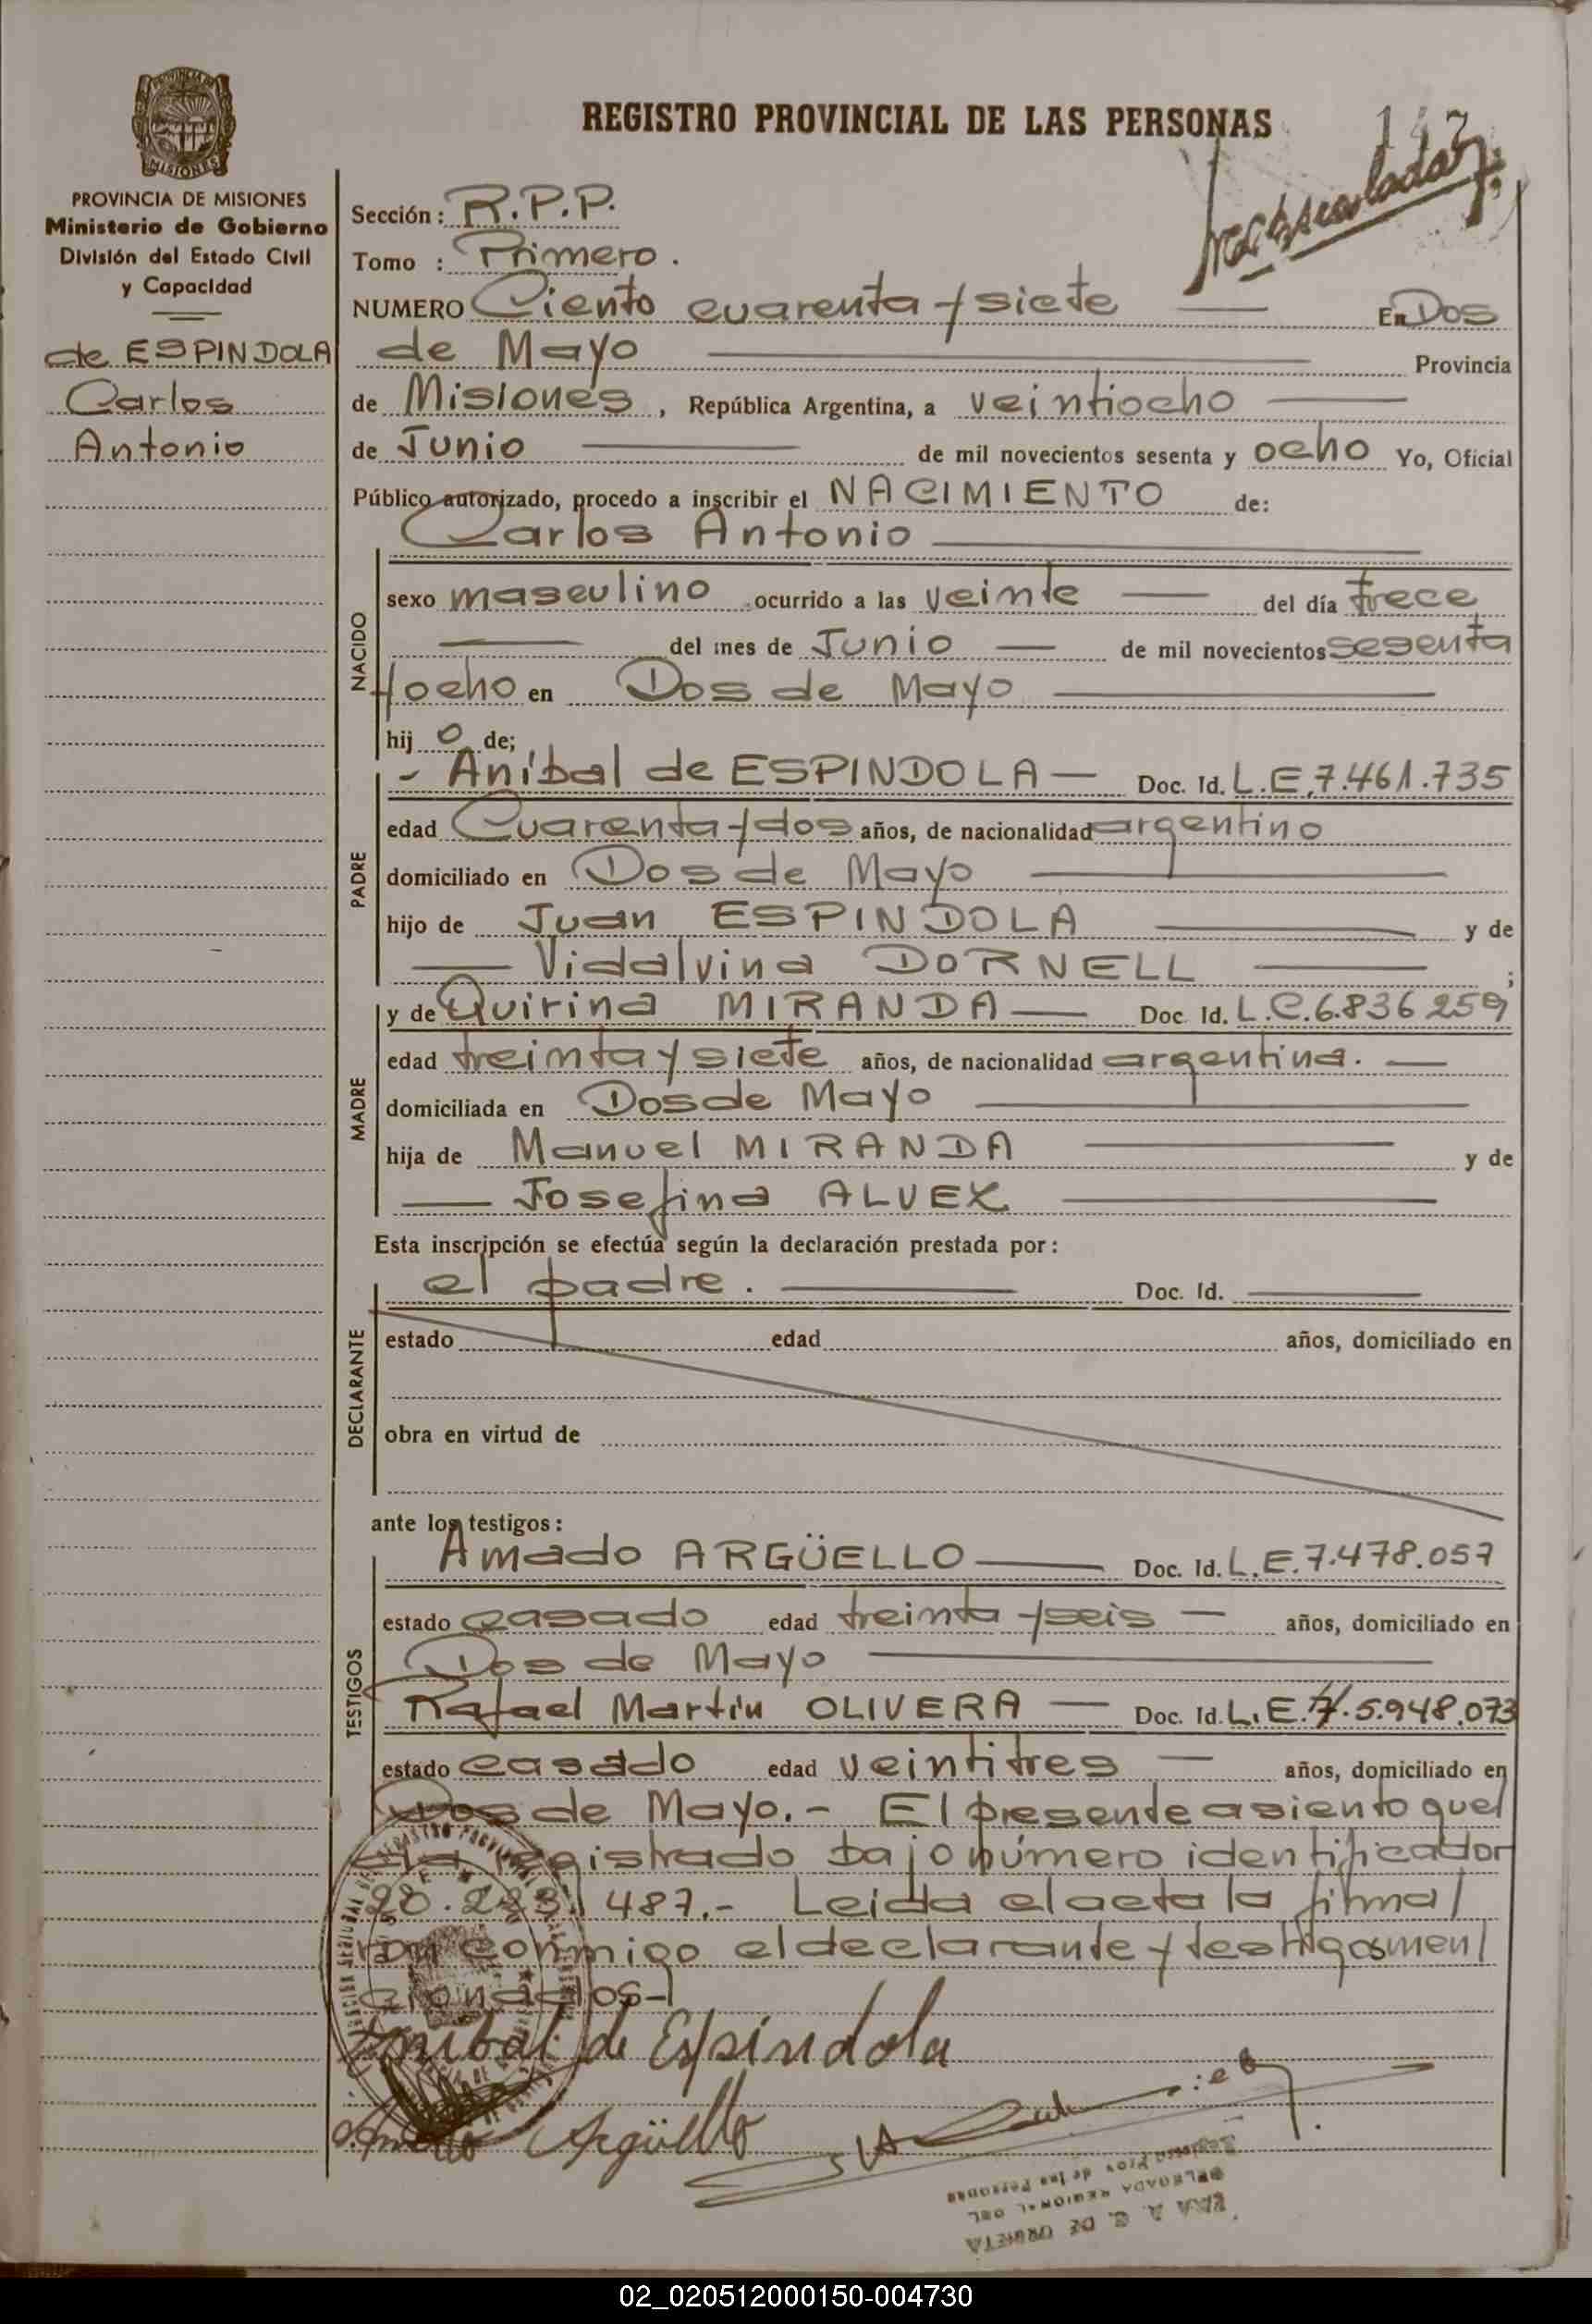 REGISTRO PROVINCIAL DE LAS PERSONAS
147
PROVINCIA DE MISIONES
Ministerio de Gobierno
División del Estado Civil
y Capacidad
de ESPINDOLA
Carlos
Antonio
Sección: R.P.P.
Tomo : Primero.
NUMERO Ciento cuarenta y siete En Dos
de Mayo Provincia
de Misiones, República Argentina, a veintiocho
de Junio de mil novecientos sesenta y ocho Yo, Oficial
Público autorizado, procedo a inscribir el NACIMIENTO de:
Carlos Antonio
NACIDO
sexo masculino ocurrido a las veinte del día trece
del mes de Junio de mil novecientos sesenta
y ocho en Dos de Mayo
hij o de;
PADRE
- Aníbal de ESPINDOLA — Doc. Id. L.E.7.461.735
edad Cuarenta y dos años, de nacionalidad argentino
domiciliado en Dos de Mayo
hijo de Juan ESPINDOLA y de
Vidalvina DORNELL ;
MADRE
y de Quirina MIRANDA — Doc. Id. L.C.6.836259
edad treinta y siete años, de nacionalidad argentina. —
domiciliada en Dos de Mayo
hija de Manuel MIRANDA y de
Josefina ALVEX
Esta inscripción se efectúa según la declaración prestada por:
DECLARANTE
el padre. Doc. Id.
estado edad años, domiciliado en
obra en virtud de
ante los testigos:
TESTIGOS
Amado ARGÜELLO Doc. Id. L.E.7.478.057
estado casado edad treinta y seis — años, domiciliado en
Dos de Mayo
Rafael Martin OLIVERA — Doc. Id. L.E. 7. 5.948.073
estado casado edad veintitres — años, domiciliado en
Dos de Mayo.- El presente asiento que/
da registrado bajo número identificador
20.223.487.- Leida el acta la firma/
ron conmigo el declarante y testigos men/
cionados-
Anibal de Espíndola
Amado Argüello
DELEGADA REGIONAL DEL
Prov de las Personas
DE URRIETA
02_020512000150-004730